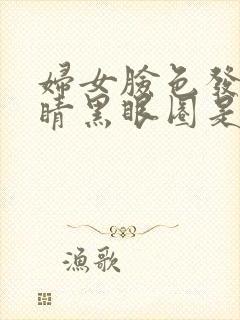 婦女臉色發
睛黑眼圈是
漁歌